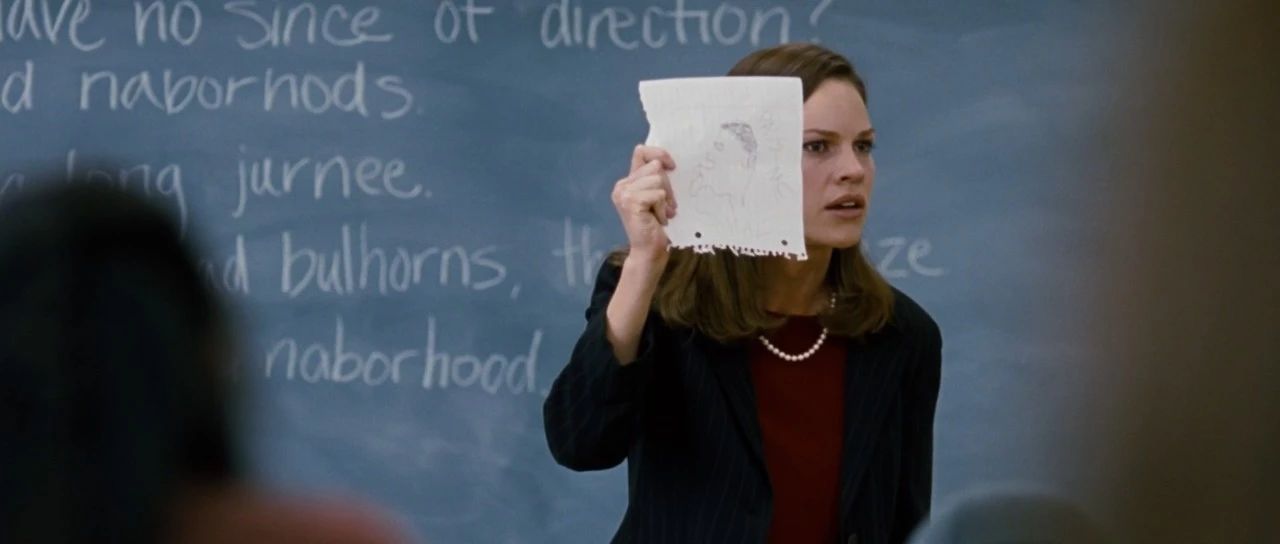 ave no since of direction?
d naborhods.
a long jurnee.
d bulhorns, th ze
naborhood.